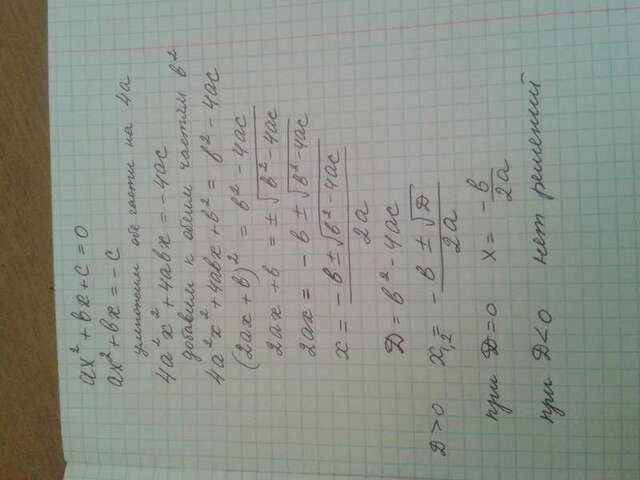 ax² + bx + c = 0
ax² + bx = -c
умножим обе части на 4a
4a²x² + 4abx = -4ac
добавим к обеим частям b²
4a²x² + 4abx + b² = b² - 4ac
(2ax + b)² = b² - 4ac
2ax + b = ±√(b² - 4ac)
2ax = -b ± √(b² - 4ac)
x = (-b ± √(b² - 4ac)) / 2a
D = b² - 4ac
D > 0 x₁,₂ = (-b ± √D) / 2a
при D = 0 x = -b / 2a
при D < 0 нет решений